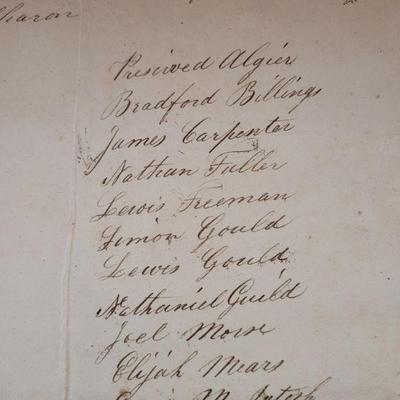 Sharon
Preserved Algier
Bradford Billings
James Carpenter
Nathan Fuller
Lewis Freeman
Simon Gould
Lewis Gould
Nathaniel Guild
Joel Morse
Elijah Mears
McIntosh